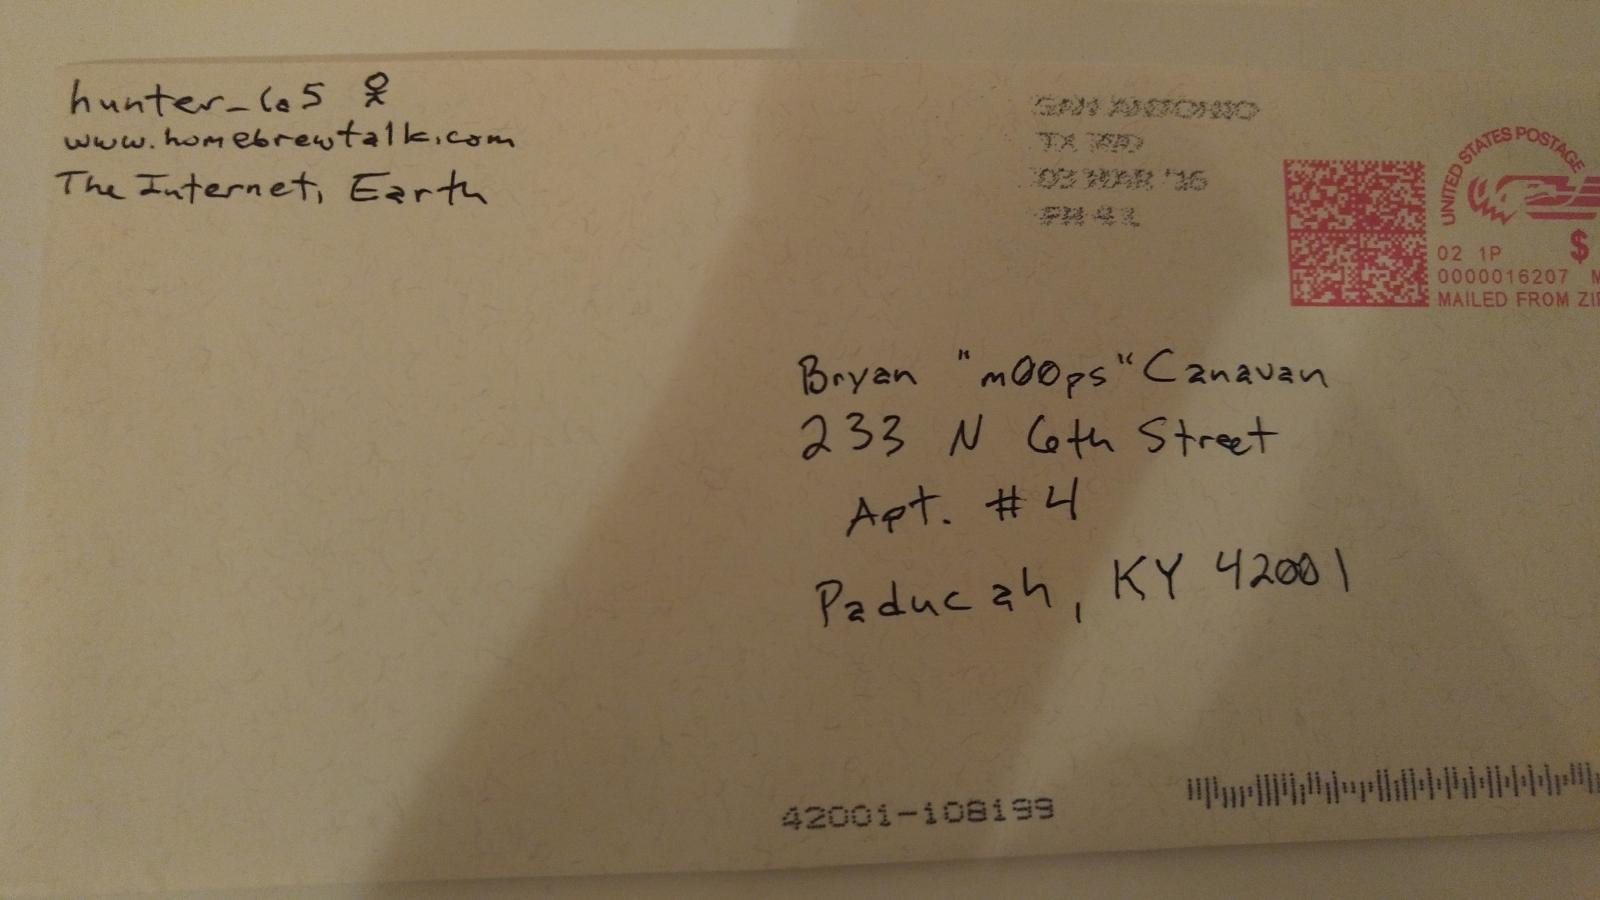 hunter_la5
www.homebrewtalk.com
The Internet, Earth
SAN ANTONIO
TX 780
03 MAR '16
PM 4 L
UNITED STATES POSTAGE
$
02 1P
0000016207 M
MAILED FROM ZIP
Bryan "m00ps" Canavan
233 N 6th Street
Apt. #4
Paducah, KY 42001
42001-108199